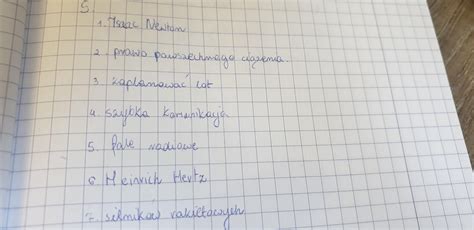 5.
1. Isaac Newton
2. prawo powszechnego ciążenia.
3. zaplanować lot
4. szybka komunikacja
5. fale radiowe
6. Heinrich Hertz
7. silników rakietowych